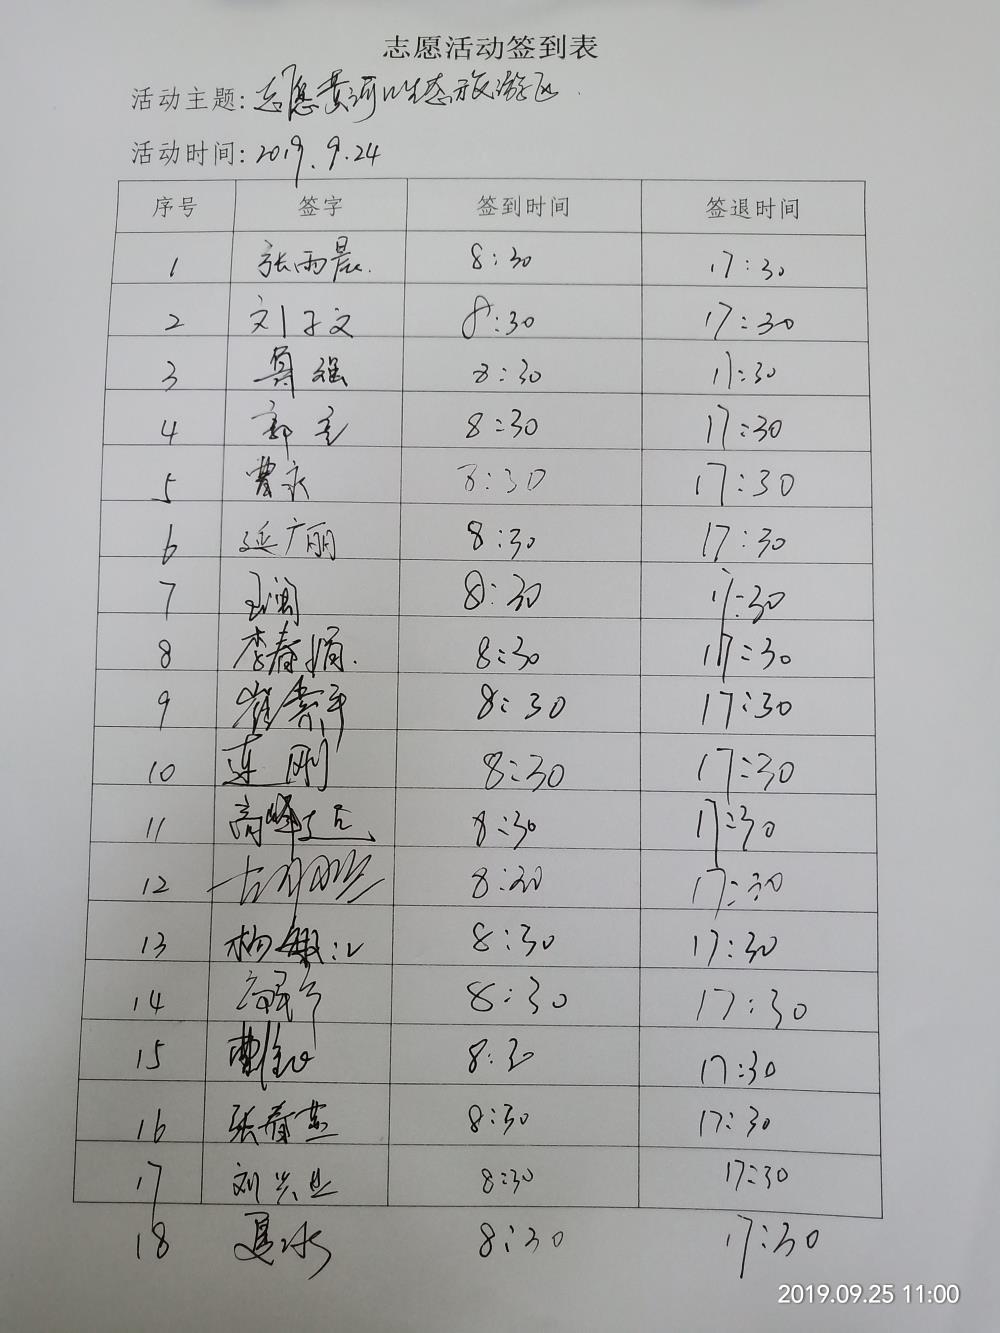 志愿活动签到表
活动主题:志愿黄河口生态旅游区.
活动时间:2019.9.24
序号 签字 签到时间 签退时间
1 张雨晨. 8:30 17:30
2 刘子文 8:30 17:30
3 8:30 17:30
4 郭亮 8:30 17:30
5 曹永 8:30 17:30
6 延广丽 8:30 17:30
7 8:30 17:30
8 李春娟. 8:30 17:30
9 8:30 17:30
10 连刚 8:30 17:30
11 8:30 17:30
12 8:30 17:30
13 8:30 17:30
14 8:30 17:30
15 8:30 17:30
16 张春燕 8:30 17:30
17 刘兴 8:30 17:30
18 8:30 17:30
2019.09.25 11:00